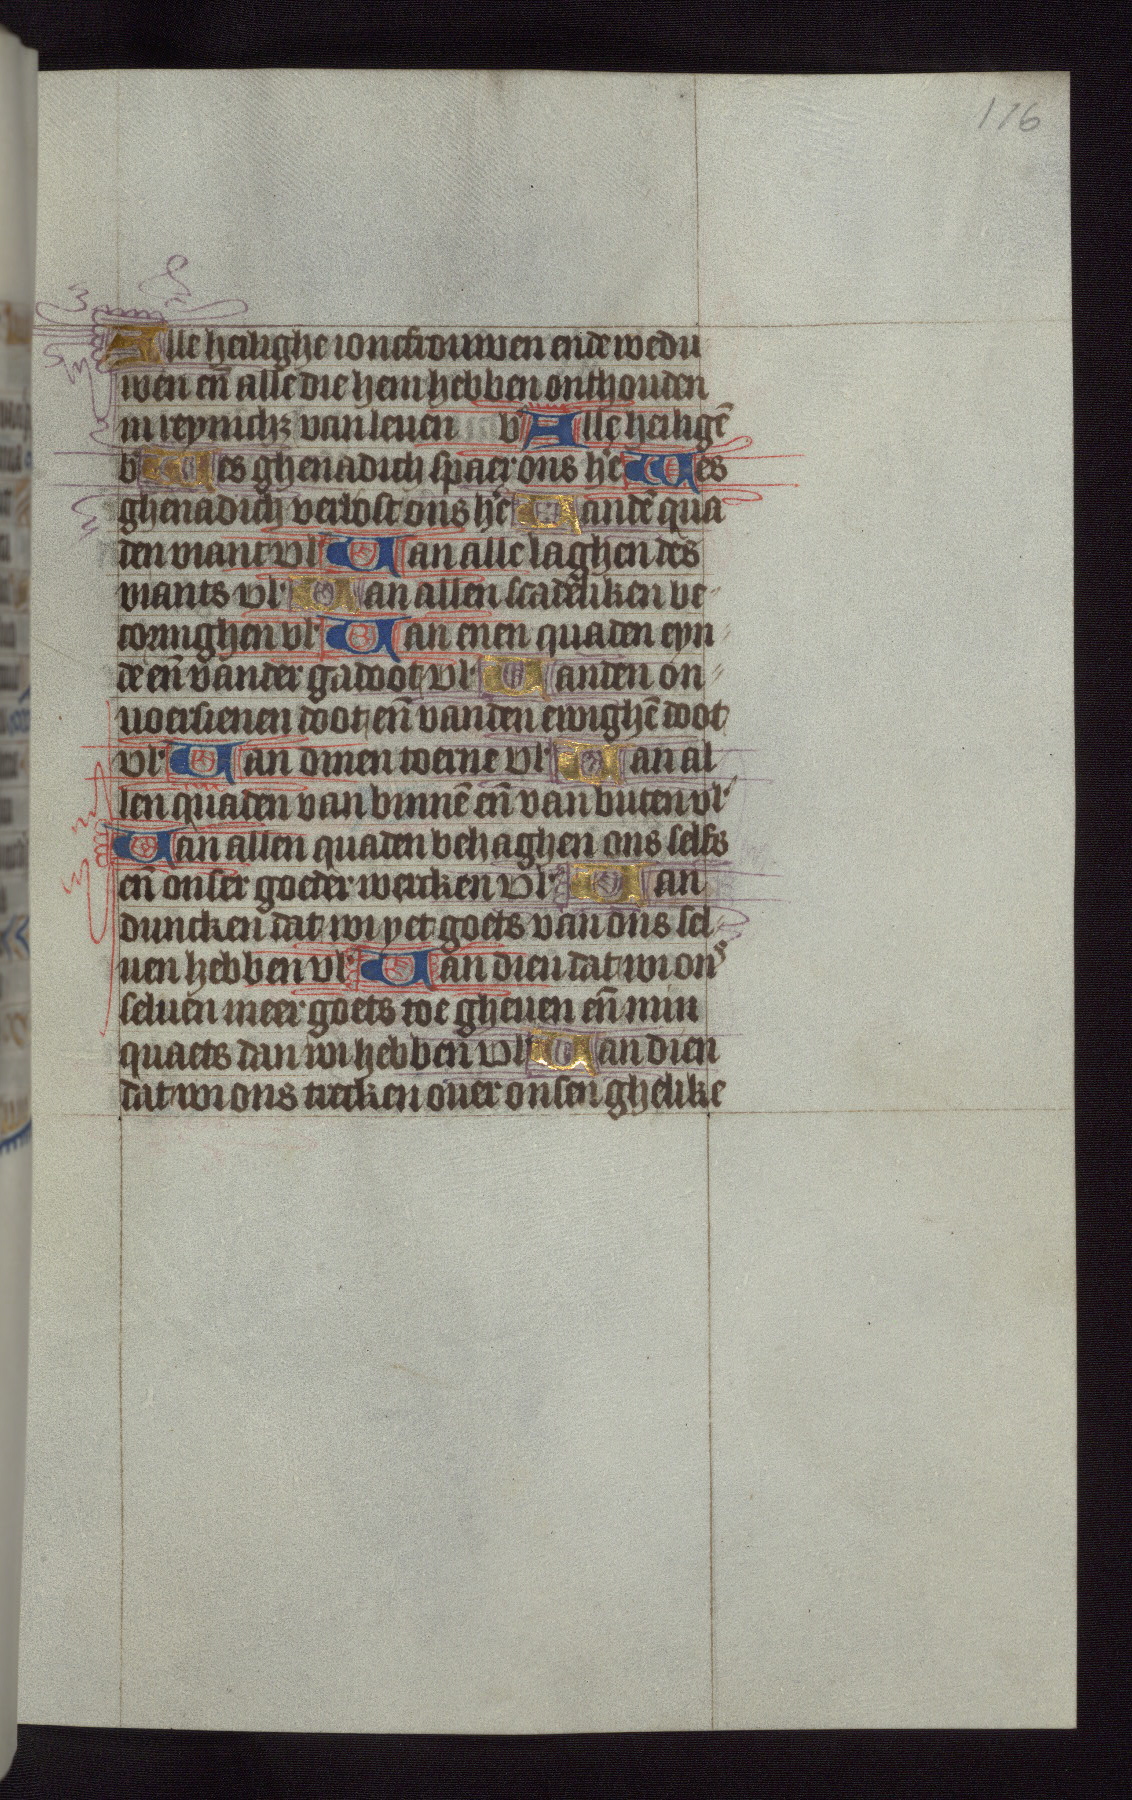 176
Alle heilighe ioncfrouwen ende wedu
wen en̄ alle die hem hebben onthouden
in reynich; van leuen v Alle heilighē
b Wes ghenadich spaer ons hē Wes
ghenadich verlost ons hē Vandē qua
den viant vl' Van alle laghen des
viants vl' Van allen scadeliken be-
coringhen vl' Van enen quaden eyn
de en̄ vander gadoot vl' Vanden on
uoersienen doot en̄ vanden ewighē doot
vl' Van dinen toerne vl' Van al
len quaden van binnē en̄ van buten vl'
Van allen quaden behaghen ons selfs
en̄ onser goeder wercken vl' Van
duncken dat wi yet goets van ons sel
uen hebben vl' Van dien dat wi ons
seluen meer goets toe gheuen en̄ min
quaets dan wi hebben vl' Van dien
dat wi ons trecken ouer onsen ghelike